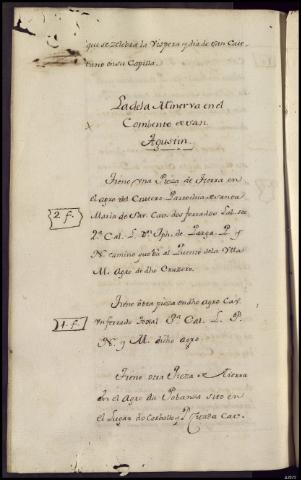 que se zelebra la Vispera y dia de San Caie
tano en su Capilla.
La de la Minerva en el
Combento de San
Agustin.
Tiene una Pieza de tierra en
el agro del Crucero Parrochia de Santa
Maria de
2 f.
dos ferrados
2ª Cal. L. Dn Jph. de Parga. P. y
N. camino que bá al Puente de la Villa
M. Agro de dho Cruzero.
Tiene otra pieza en dho Agro Cav.
1 f.
un ferrado
Cal. L. P.
N. y M. dicho agro
Tiene otra Pieza de tierra
en el Agro da Pobanza sito en
el Lugar de
Cav.